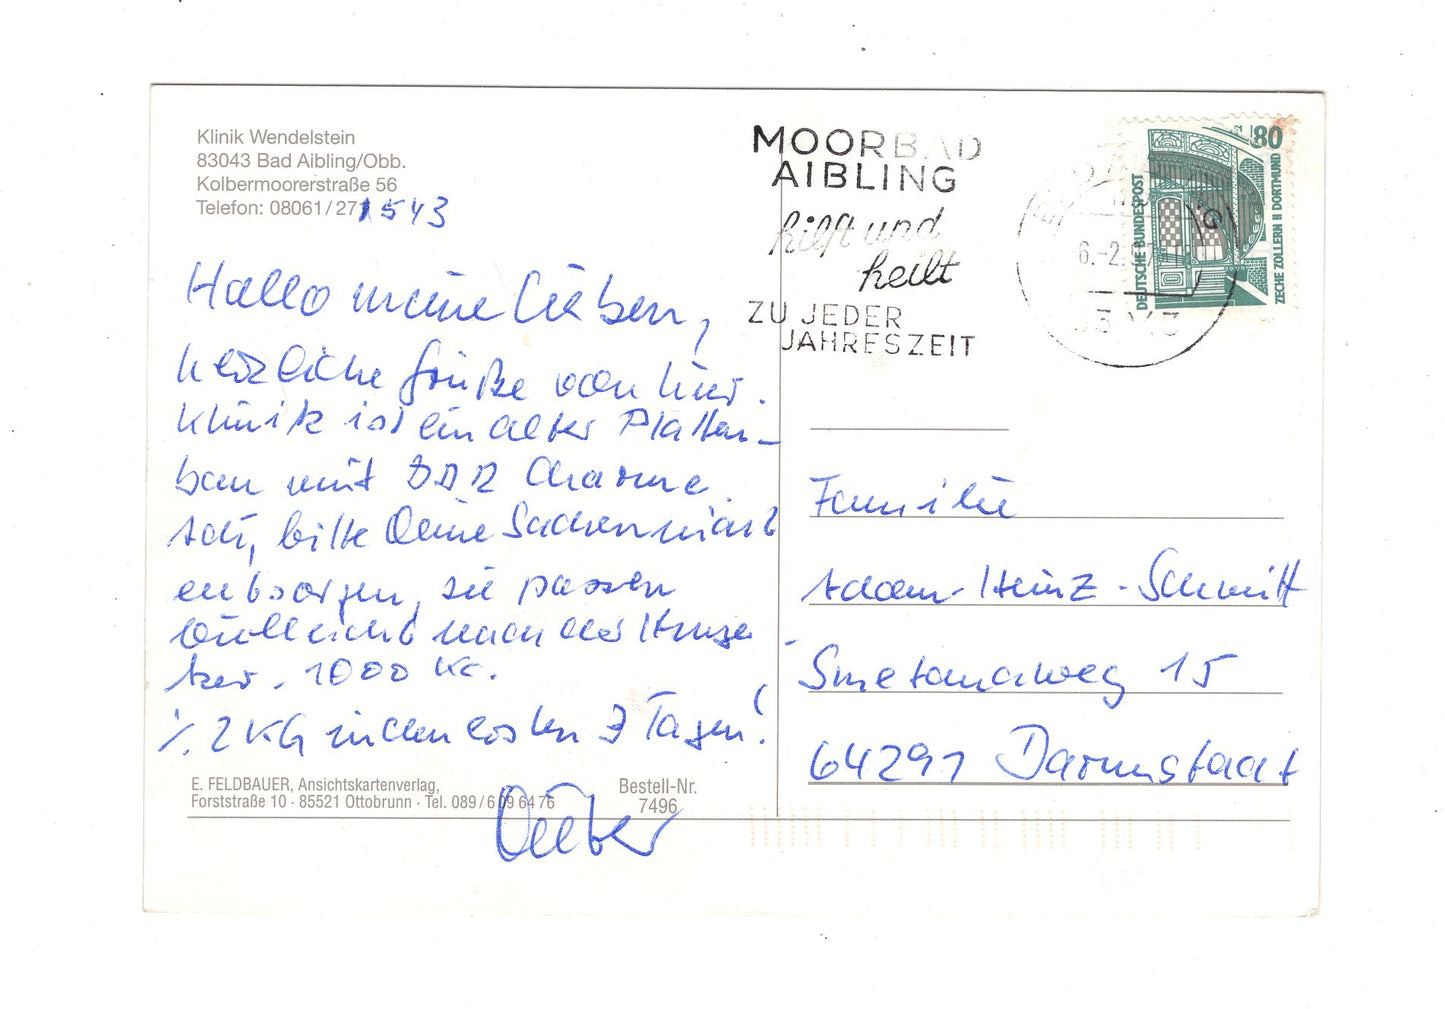 Klinik Wendelstein
83043 Bad Aibling/Obb.
Kolbermoorerstraße 56
Telefon: 08061/271543
MOORBAD
AIBLING
hilft und
heilt
ZU JEDER
JAHRESZEIT
6.-2.9
80
DEUTSCHE BUNDESPOST
ZECHE ZOLLERN II DORTMUND
Hallo meine Lieben,
herzliche Grüße von hier.
Klinik ist ein alter Platten-
bau mit DDR Charme.
bitte Deine Sachen nicht
entsorgen, sie passen
vielleicht nach der
1000 Kc.
2 KG in den ersten 3 Tagen!
Familie
Adam-Heinz-Schmitt
Smetanaweg 15
64291 Darmstadt
E. FELDBAUER, Ansichtskartenverlag,
Forststraße 10 · 85521 Ottobrunn · Tel. 089/6 09 64 76
Bestell-Nr.
7496